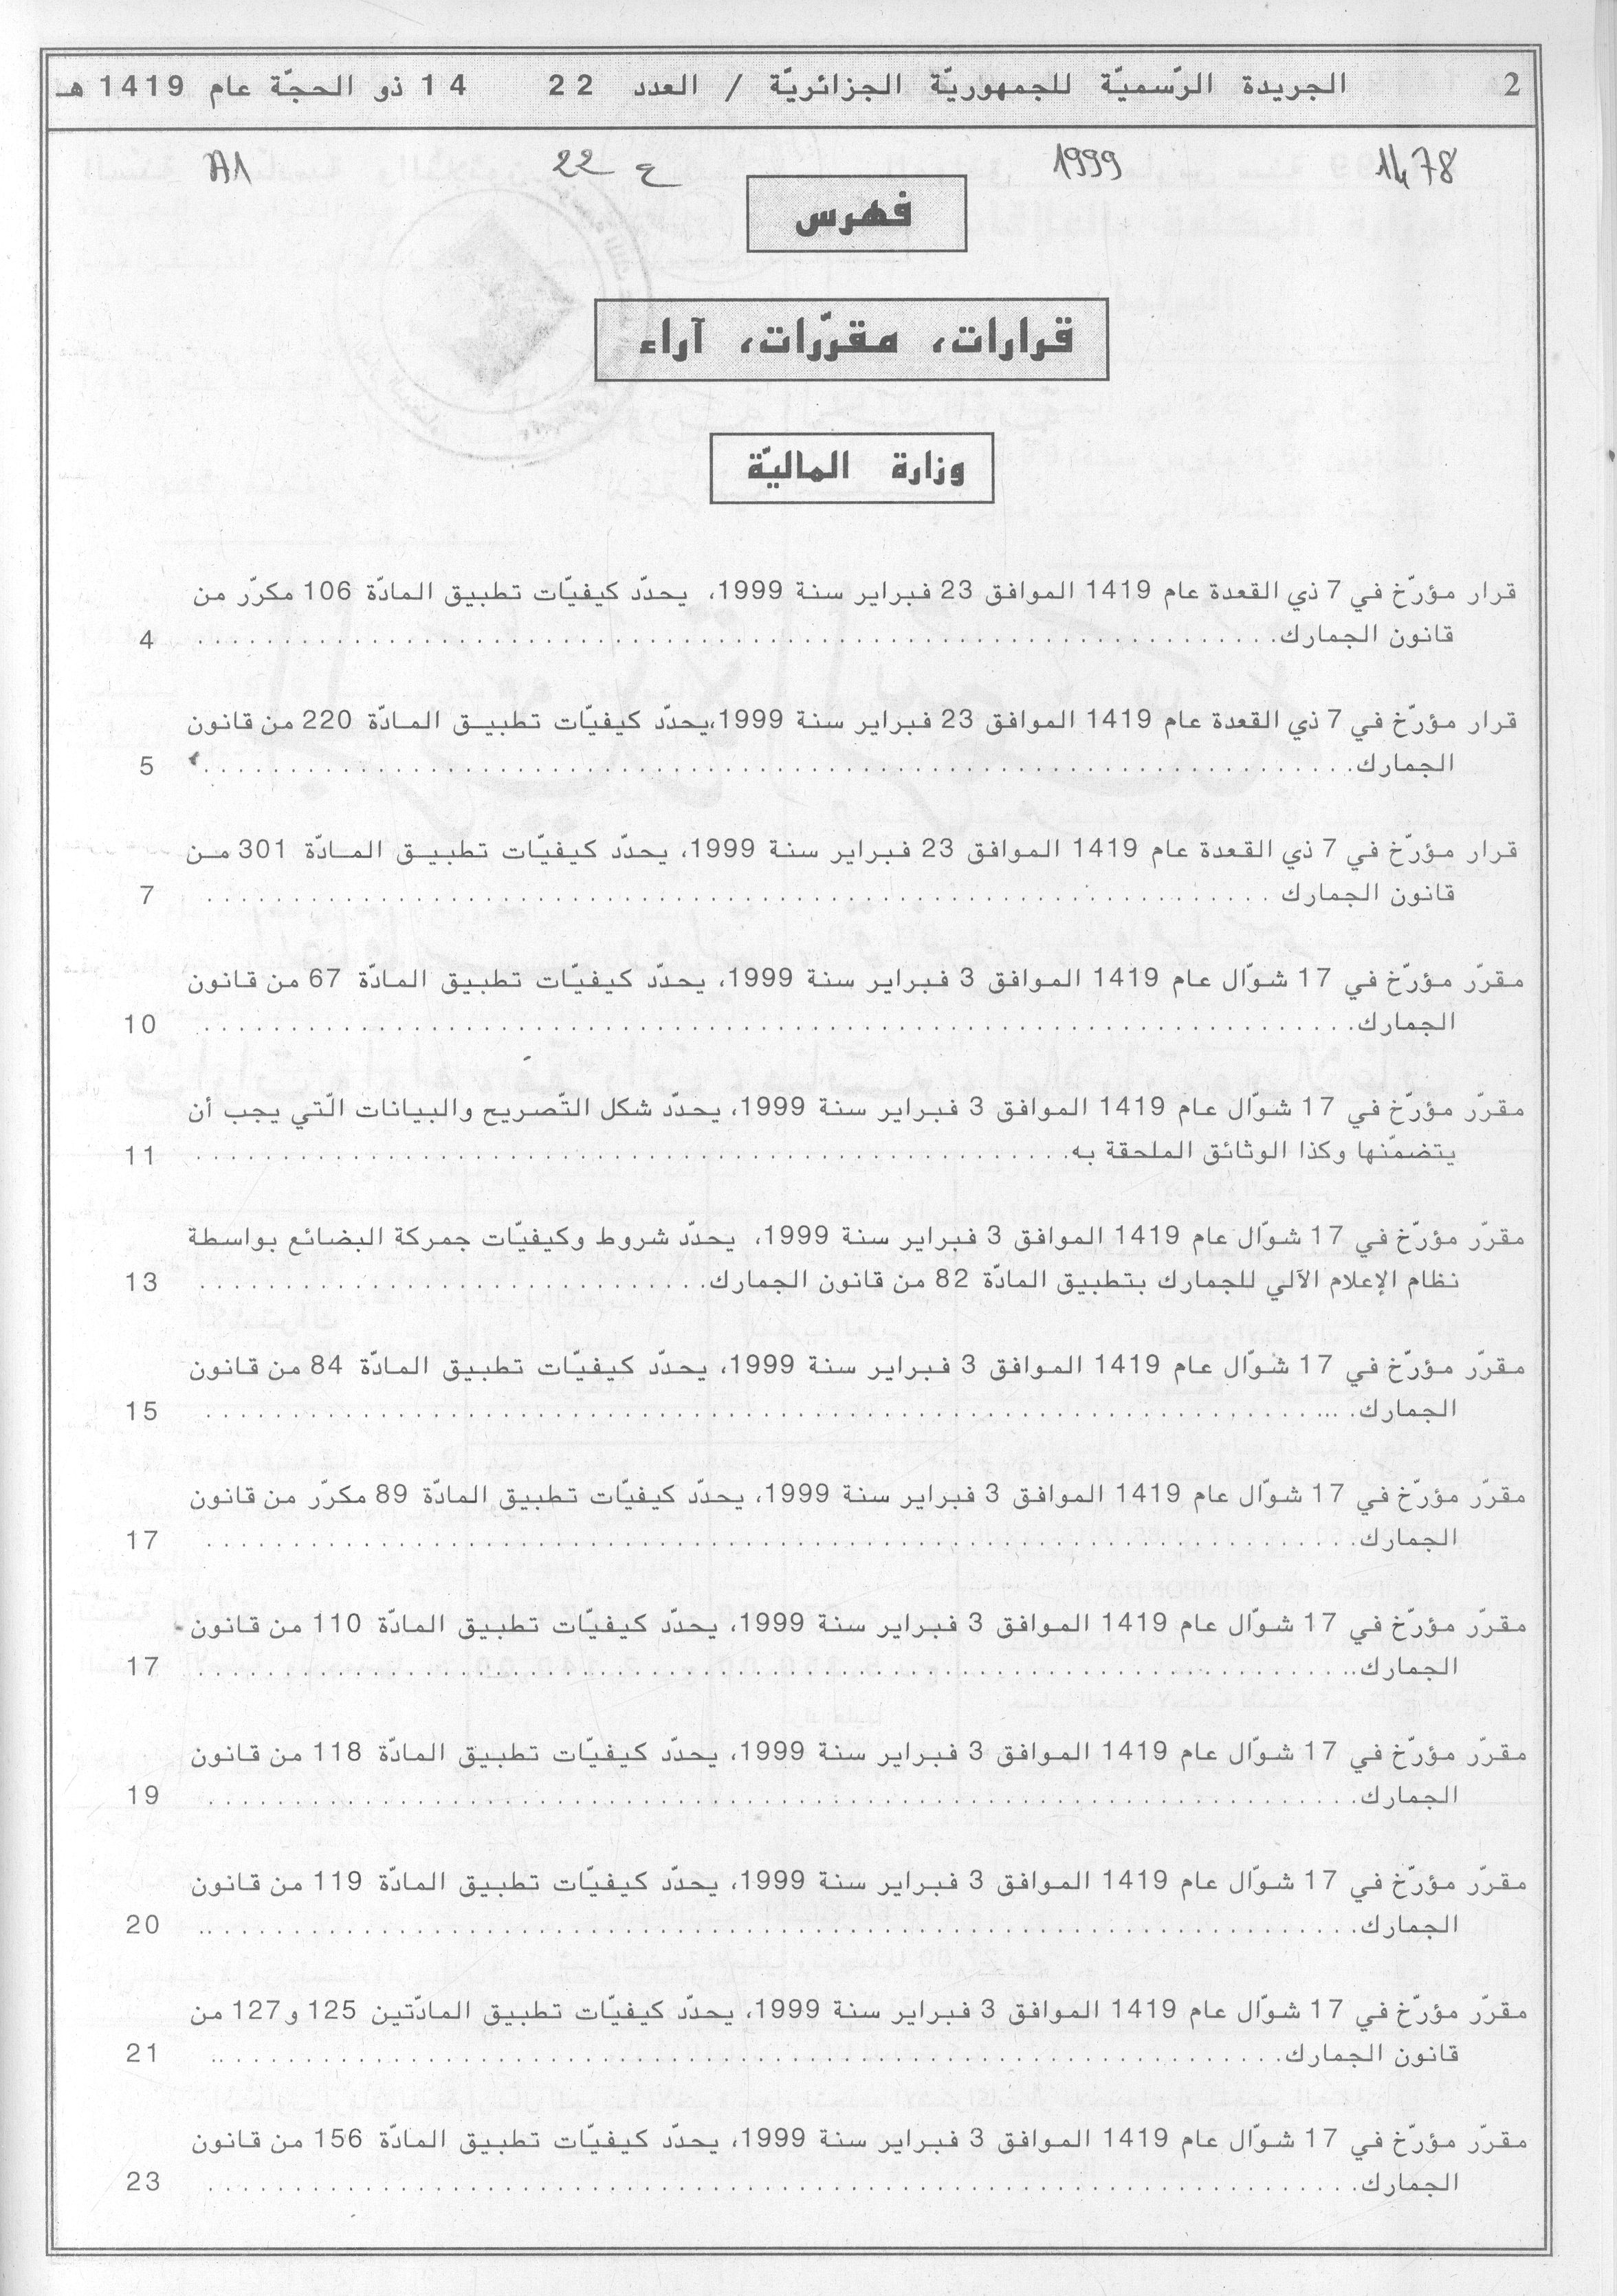 2 الجريدة الرّسميّة للجمهوريّة الجزائريّة / العدد 22 14 ذو الحجّة عام 1419 هـ
1478 1999 ع 22 A1
فهرس
قرارات، مقرّرات، آراء
وزارة الماليّة
قرار مؤرّخ في 7 ذي القعدة عام 1419 الموافق 23 فبراير سنة 1999، يحدّد كيفيّات تطبيق المادّة 106 مكرّر من
قانون الجمارك. . . . . . . . . . . . . . . . . . . . 4
قرار مؤرّخ في 7 ذي القعدة عام 1419 الموافق 23 فبراير سنة 1999،يحدّد كيفيّات تطبيـق المـادّة 220 من قانون
الجمارك. . . . . . . . . . . . . . . . . . . . 5
قرار مؤرّخ في 7 ذي القعدة عام 1419 الموافق 23 فبراير سنة 1999، يحدّد كيفيّات تطبيـق المـادّة 301 مـن
قانون الجمارك . . . . . . . . . . . . . . . . . . . . 7
مقرّر مؤرّخ في 17 شوّال عام 1419 الموافق 3 فبراير سنة 1999، يحدّد كيفيّات تطبيق المادّة 67 من قانون
الجمارك. . . . . . . . . . . . . . . . . . . . 10
مقرّر مؤرّخ في 17 شوّال عام 1419 الموافق 3 فبراير سنة 1999، يحدّد شكل التّصريح والبيانات الّتي يجب أن
يتضمّنها وكذا الوثائق الملحقة به. . . . . . . . . . . . . . . . . . . . 11
مقرّر مؤرّخ في 17 شوّال عام 1419 الموافق 3 فبراير سنة 1999، يحدّد شروط وكيفيّات جمركة البضائع بواسطة
نظام الإعلام الآلي للجمارك بتطبيق المادّة 82 من قانون الجمارك. . . . . . . . . . . . . . . . . . . . 13
مقرّر مؤرّخ في 17 شوّال عام 1419 الموافق 3 فبراير سنة 1999، يحدّد كيفيّات تطبيق المادّة 84 من قانون
الجمارك. . . . . . . . . . . . . . . . . . . . 15
مقرّر مؤرّخ في 17 شوّال عام 1419 الموافق 3 فبراير سنة 1999، يحدّد كيفيّات تطبيق المادّة 89 مكرّر من قانون
الجمارك. . . . . . . . . . . . . . . . . . . . 17
مقرّر مؤرّخ في 17 شوّال عام 1419 الموافق 3 فبراير سنة 1999، يحدّد كيفيّات تطبيق المادّة 110 من قانون
الجمارك. . . . . . . . . . . . . . . . . . . . 17
مقرّر مؤرّخ في 17 شوّال عام 1419 الموافق 3 فبراير سنة 1999، يحدّد كيفيّات تطبيق المادّة 118 من قانون
الجمارك. . . . . . . . . . . . . . . . . . . . 19
مقرّر مؤرّخ في 17 شوّال عام 1419 الموافق 3 فبراير سنة 1999، يحدّد كيفيّات تطبيق المادّة 119 من قانون
الجمارك. . . . . . . . . . . . . . . . . . . . 20
مقرّر مؤرّخ في 17 شوّال عام 1419 الموافق 3 فبراير سنة 1999، يحدّد كيفيّات تطبيق المادّتين 125 و 127 من
قانون الجمارك. . . . . . . . . . . . . . . . . . . . 21
مقرّر مؤرّخ في 17 شوّال عام 1419 الموافق 3 فبراير سنة 1999، يحدّد كيفيّات تطبيق المادّة 156 من قانون
الجمارك. . . . . . . . . . . . . . . . . . . . 23